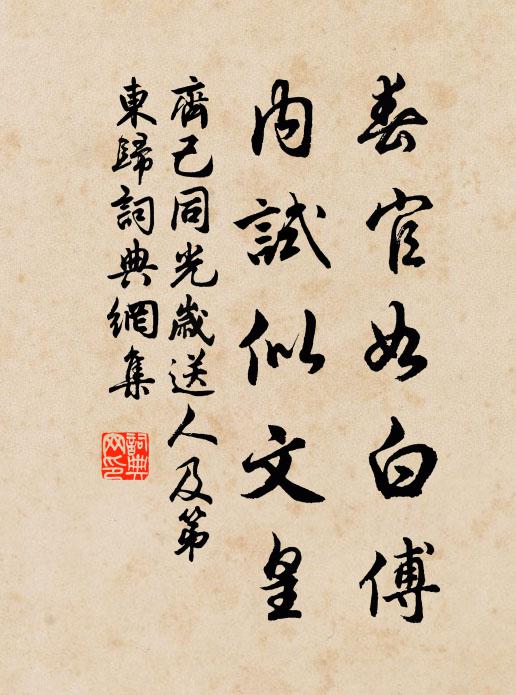 春官如白傅
內試似文皇
齊己同光歲送人及第
東歸詞典網集
詞典網印